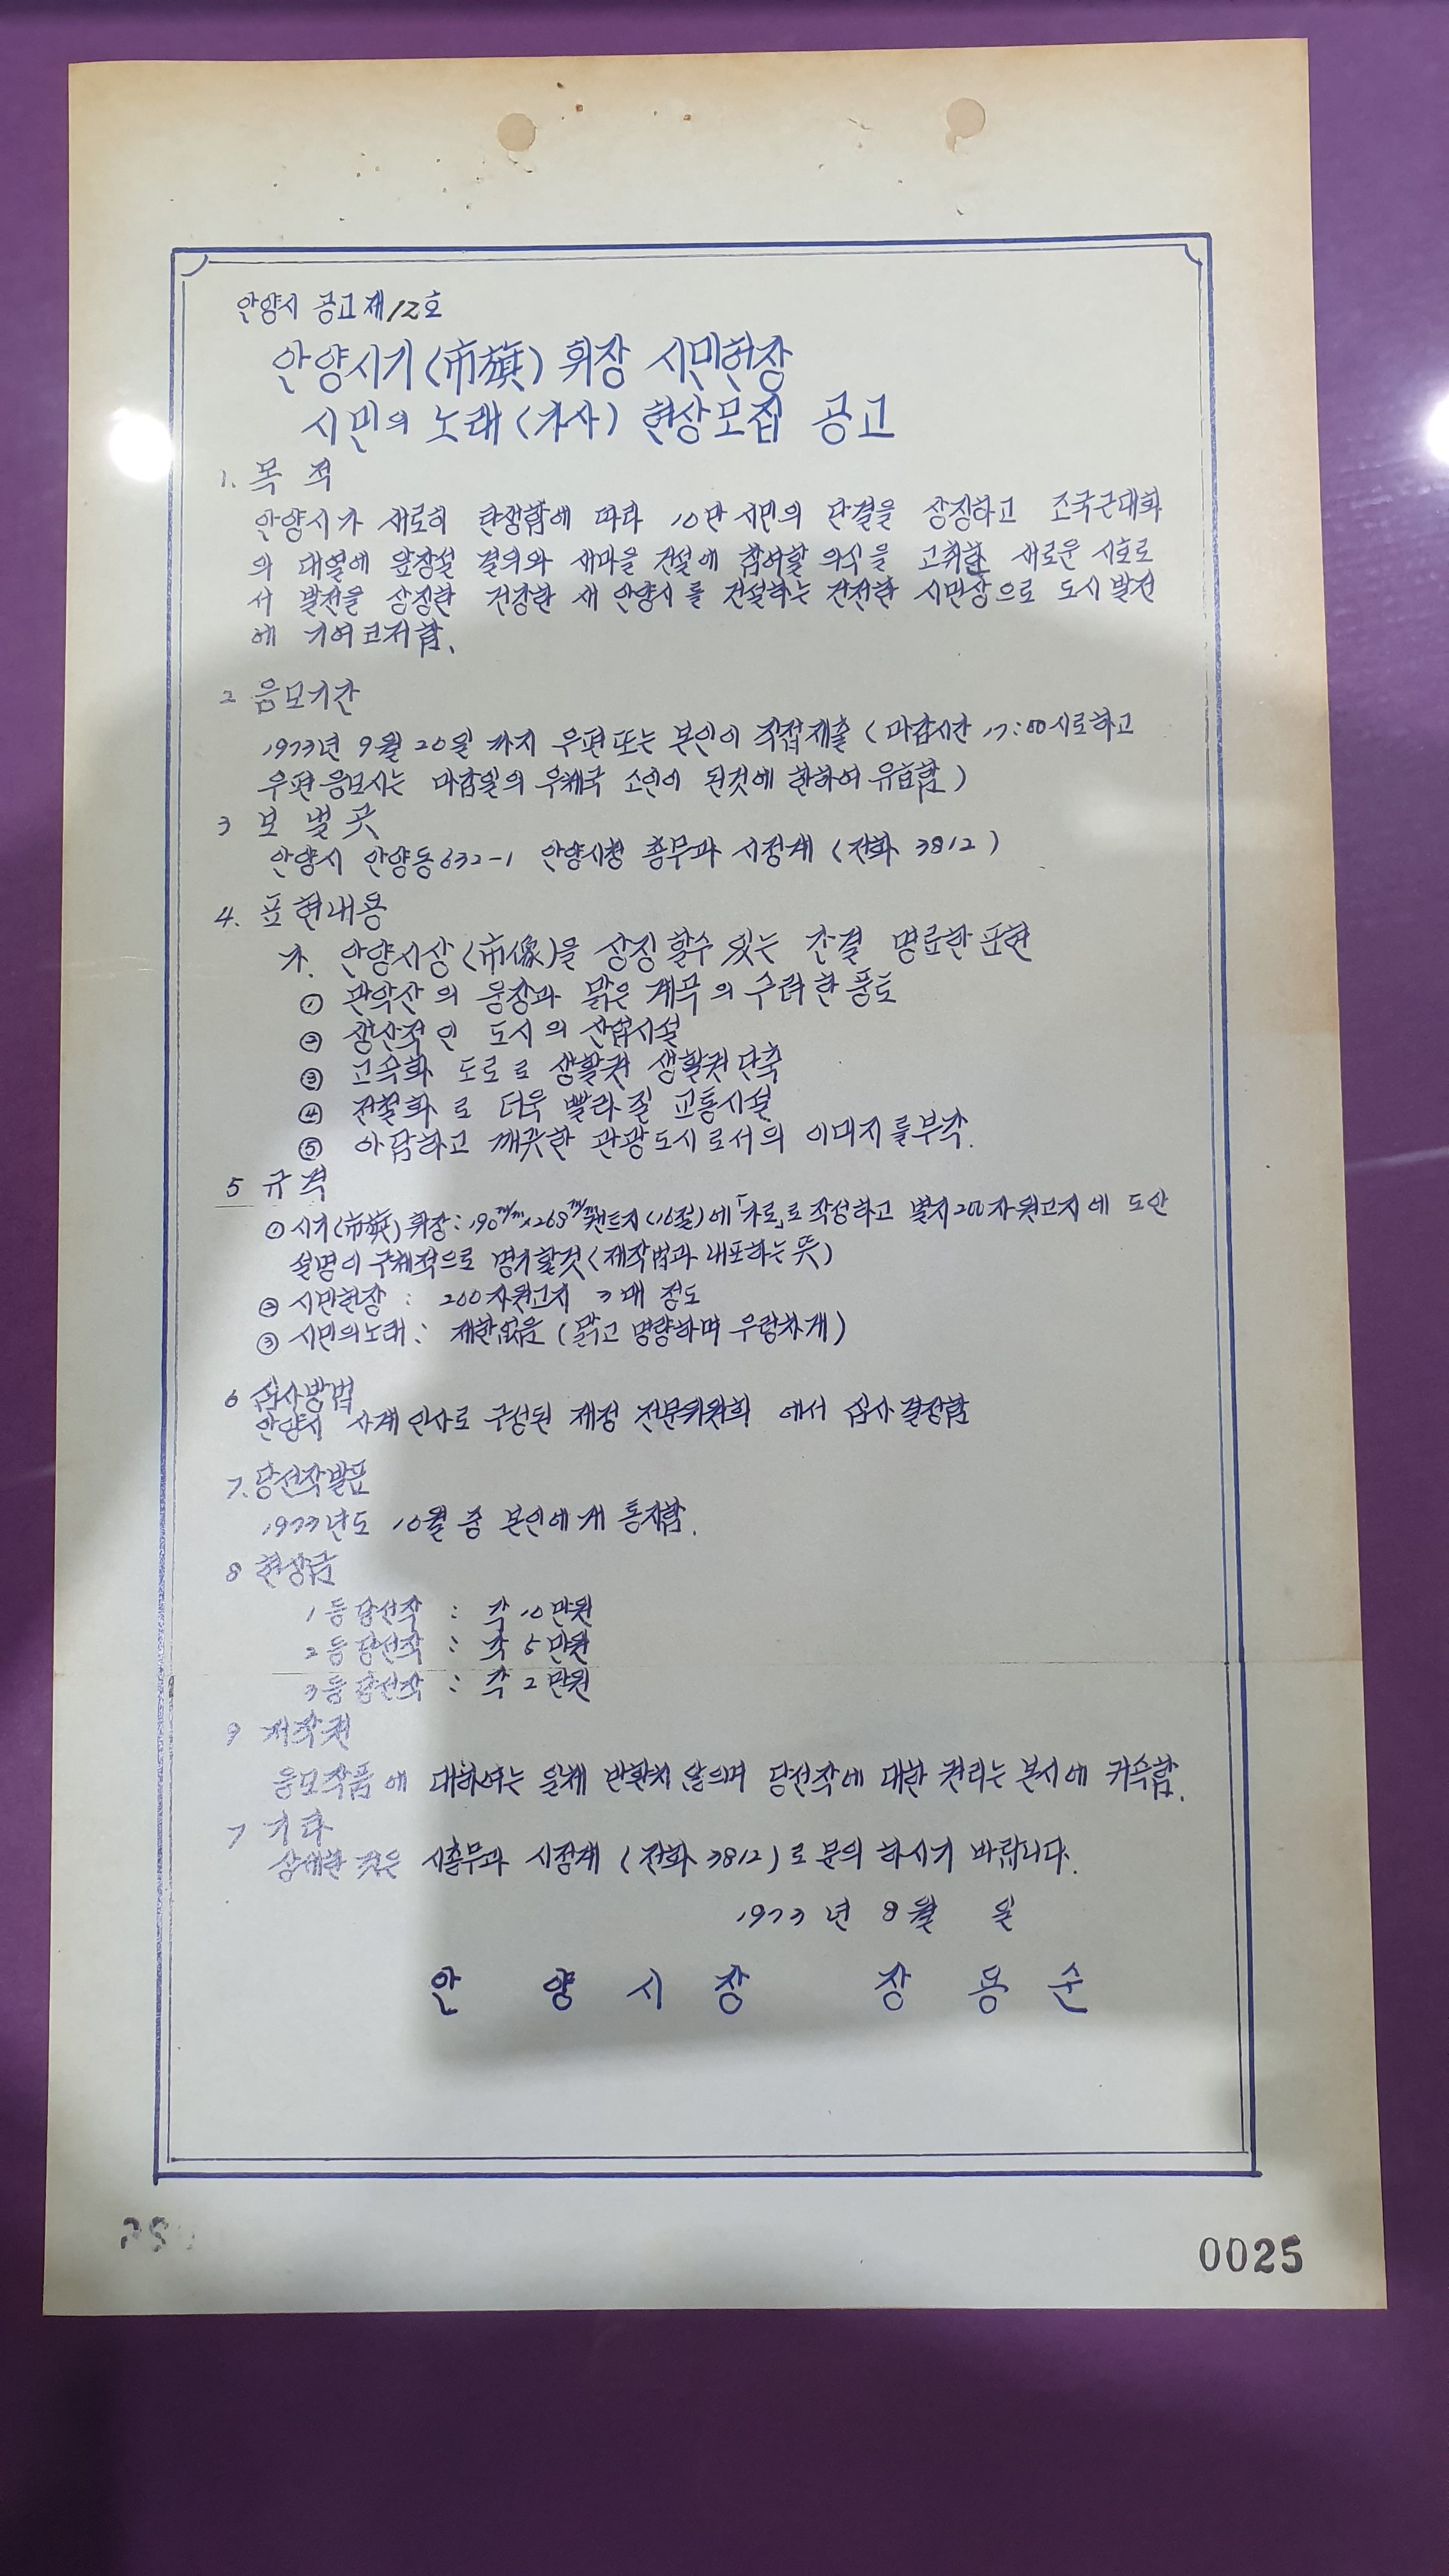 안양시 공고 제12호
안양시기(市旗) 휘장 시민헌장
시민의 노래(가사) 현상모집 공고
1. 목 적
안양시가 새로히 탄생함에 따라 10만 시민의 단결을 상징하고 조국근대화
의 대열에 앞장설 결의와 새마을 건설에 참여할 의식을 고취한 새로운 시호로
서 발전을 상징한 건강한 새 안양시를 건설하는 건전한 시민상으로 도시 발전
에 기여코저 함.
2 응모기간
1973년 9월 20일 까지 우편또는 본인이 직접제출 (마감시간 17:00시로하고
우편응모시는 마감일의 우체국 소인이 된것에 한하여 유효함)
3 보낼곳
안양시 안양동 632-1 안양시청 총무과 시정계 (전화 3812)
4. 표현내용
가. 안양시상(市像)을 상징 할수 있는 간결 명료한 표현
① 관악산의 웅장과 맑은 계곡의 수려한 풍토
② 생산적인 도시의 산업시설
③ 고속화 도로로 생활권 생활권 단축
④ 전철화로 더욱 빨라질 교통시설
⑤ 아담하고 깨끗한 관광도시로서의 이미지를 부각.
5 규격
① 시기(市旗) 휘장: 190m/m×268m/m켄트지(16절)에「가로」로 작성하고 별지200자원고지에 도안
설명이 구체적으로 명기할것(제작법과 내포하는 뜻)
② 시민헌장 : 200자원고지 3매 정도
③ 시민의노래 : 제한없음 (맑고 명랑하며 우렁차게)
6 심사방법
안양시 사계 인사로 구성된 제정 전문위원회 에서 심사 결정함
7. 당선작발표
1973년도 10월 중 본인에게 통지함.
8 현상금
1등 당선작 : 각 10만원
2등 당선작 : 각 5만원
3등 당선작 : 각 2만원
9 저작권
응모작품에 대하여는 일체 반환치 않으며 당선작에 대한 권리는 본시에 귀속함.
7 기타
상세한 것은 시총무과 시정계 (전화 3812)로 문의 하시기 바랍니다.
1973년 8월 일
안 양 시 장 장 용 순
0025